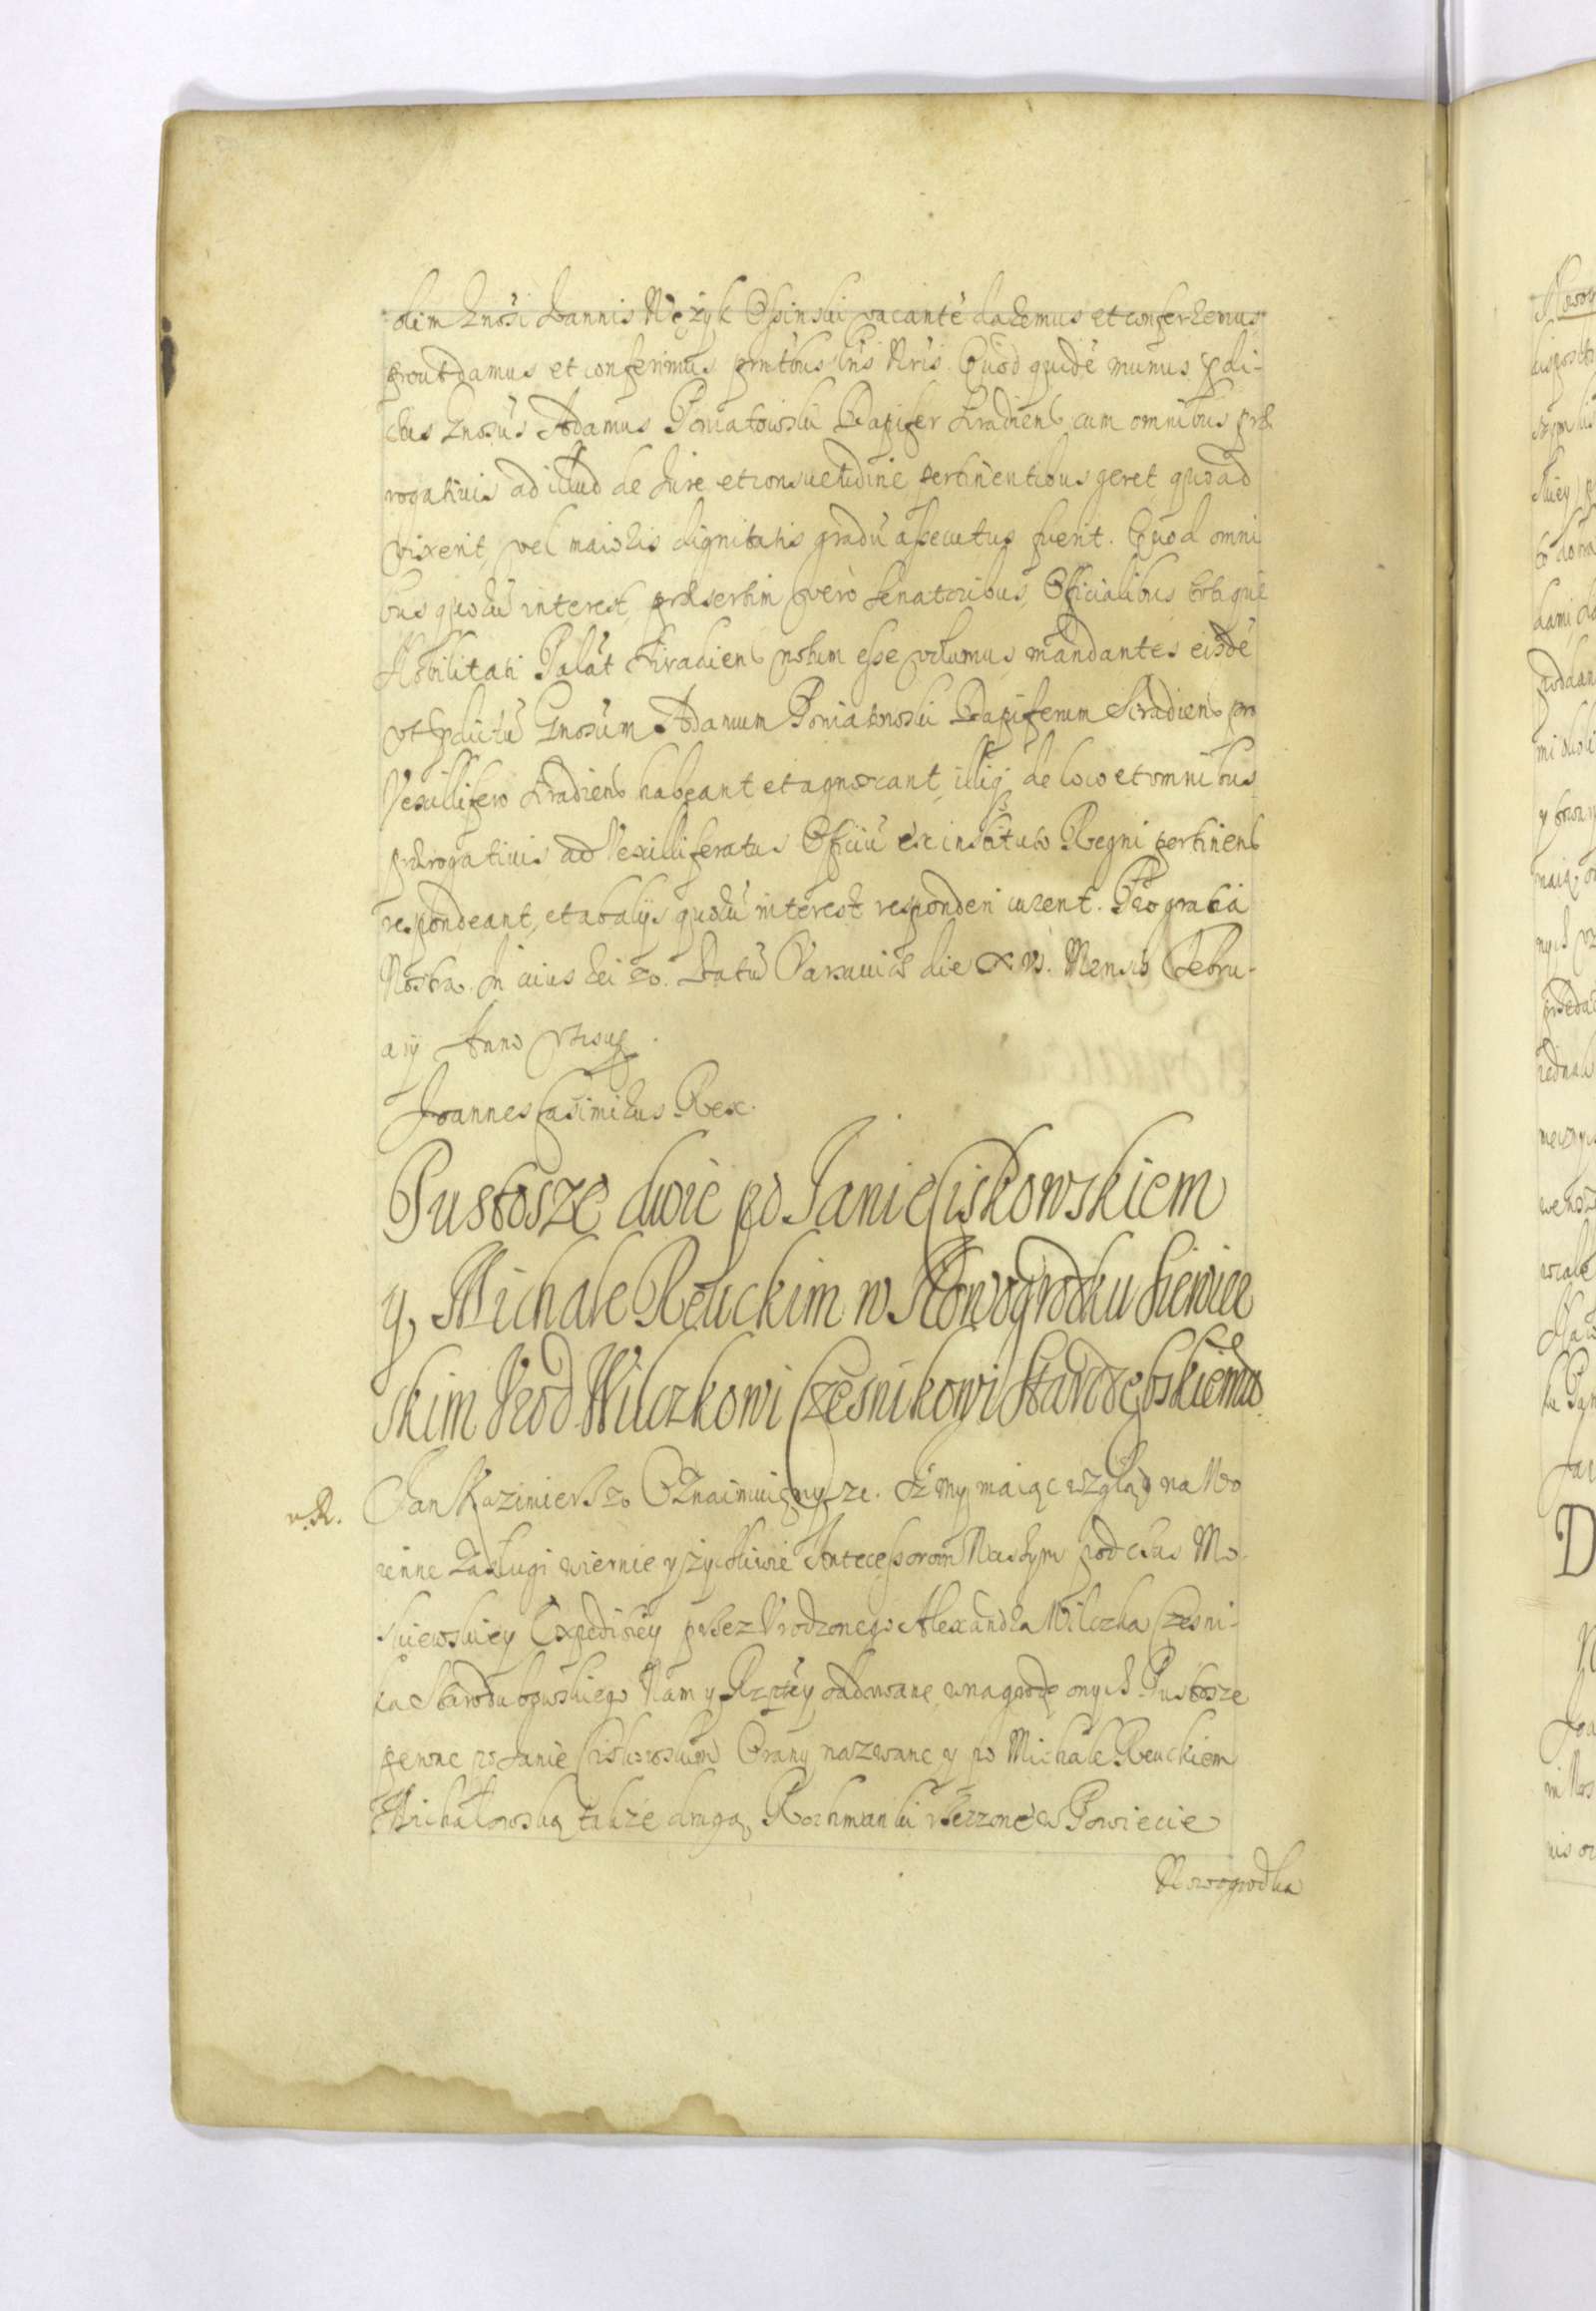 olim Gnosi Joannis Wężyk Osinski vacantē daremus et conferremus,
prout damus et conferimus pntibus Lris Nris. Quod quidē munus pdi-
ctus Gnosus Adamus Poniatowski Dapifer Siradiens cum omnibus præ
rogativis ad illud de Jure et consuetudine pertinentibus geret, quoad
vixerit, vel maioris dignitatis gradū assecutus fuerit. Quod omni
bus quorū interest, præsertim verò Senatoribus, Officialibus totique
Nobilitati Palat Siradiens notum esse volumus, mandantes eisdē
vt pdictū Gnosum Adamum Poniatowski Dapiferum Siradiens pro
Vexillifero Siradiens habeant et agnoscant, illiq; de loco et omnibus
prærogativis ad Vexilliferatus Officiū ex instituto Regni pertinens
respondeant, et ab alijs quorū interest responderi curent. Pro gratia
Nostra. In cuius rei &c. Datū Varsaviæ die XVI. Mensis Febru-
arij Anno vt supra.
Joannes Casimirus Rex.
Pustosze dwie po Janie Ciskowskiem
y Michale Reuckim w Nowogrodku Siewier
skim Vrod Wilczkowi Cześnikowi Starodębskiemu.
v. R. Jan Kazimierz &c. Oznaimuięmy &c. Iż my maiąc wzgląd na Wo
ienne Zasługi wiernie y życzliwie Antecessorom Naszym pod czas Mo-
skiewskiey Expeditiey przez Vrodzonego Alexandra Wilczka Cześni-
ka Starodubowskiego Nam y Rzptey oddawane, w nagrodę onych Pustosze
pewne po Janie Ciskowskim Orany nazwane y po Michale Reuckiem
Michałowską także drugą Rochmanki rzeczone w Powiecie
Nowogrodka